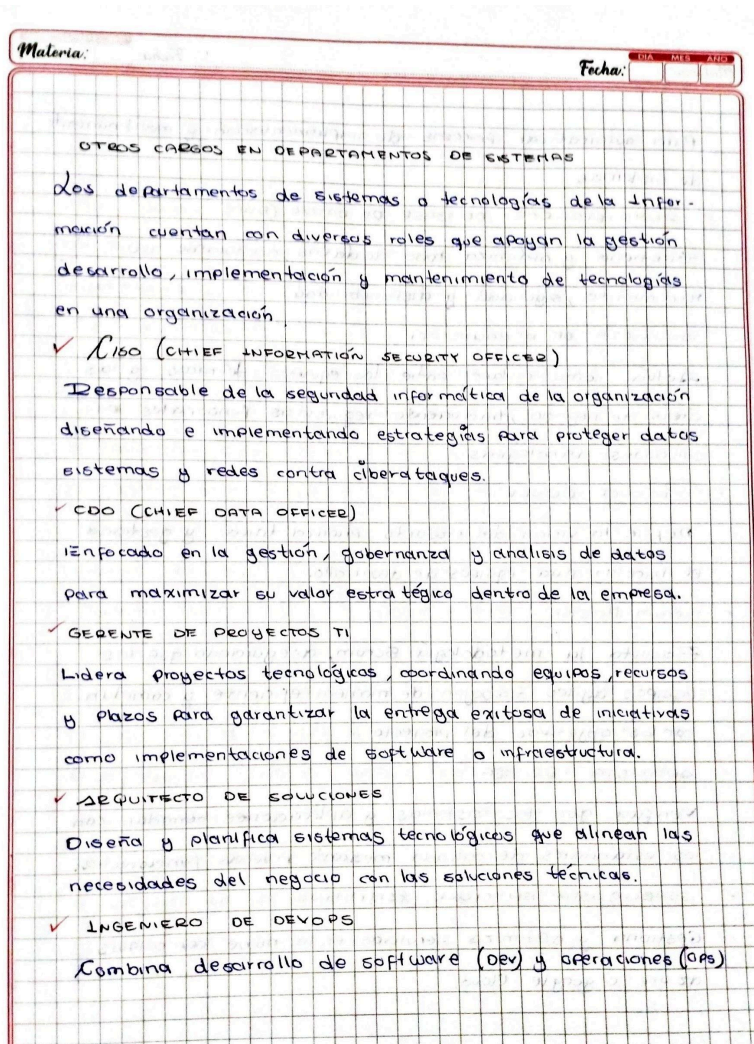 Materia:
Fecha: DIA MES AÑO
OTROS CARGOS EN DEPARTAMENTOS DE SISTEMAS
Los departamentos de sistemas o tecnologías de la Infor-
mación cuentan con diversos roles que apoyan la gestión
desarrollo, implementación y mantenimiento de tecnologías
en una organización.
✓ CISO (CHIEF INFORMATIÓN SECURITY OFFICER)
Responsable de la seguridad informática de la organización
diseñando e implementando estrategias para proteger datos
sistemas y redes contra ciberataques.
✓ CDO (CHIEF DATA OFFICER)
Enfocado en la gestión, gobernanza y analisis de datos
para maximizar su valor estratégico dentro de la empresa.
✓ GERENTE DE PROYECTOS TI
Lidera proyectos tecnológicos, coordinando equipos, recursos
y plazos para garantizar la entrega exitosa de iniciativas
como implementaciones de software o infraestructura.
✓ ARQUITECTO DE SOLUCIONES
Diseña y planifica sistemas tecnológicos que alinean las
necesidades del negocio con las soluciones técnicas.
✓ INGENIERO DE DEVOPS
Combina desarrollo de software (Dev) y operaciones (OPS)